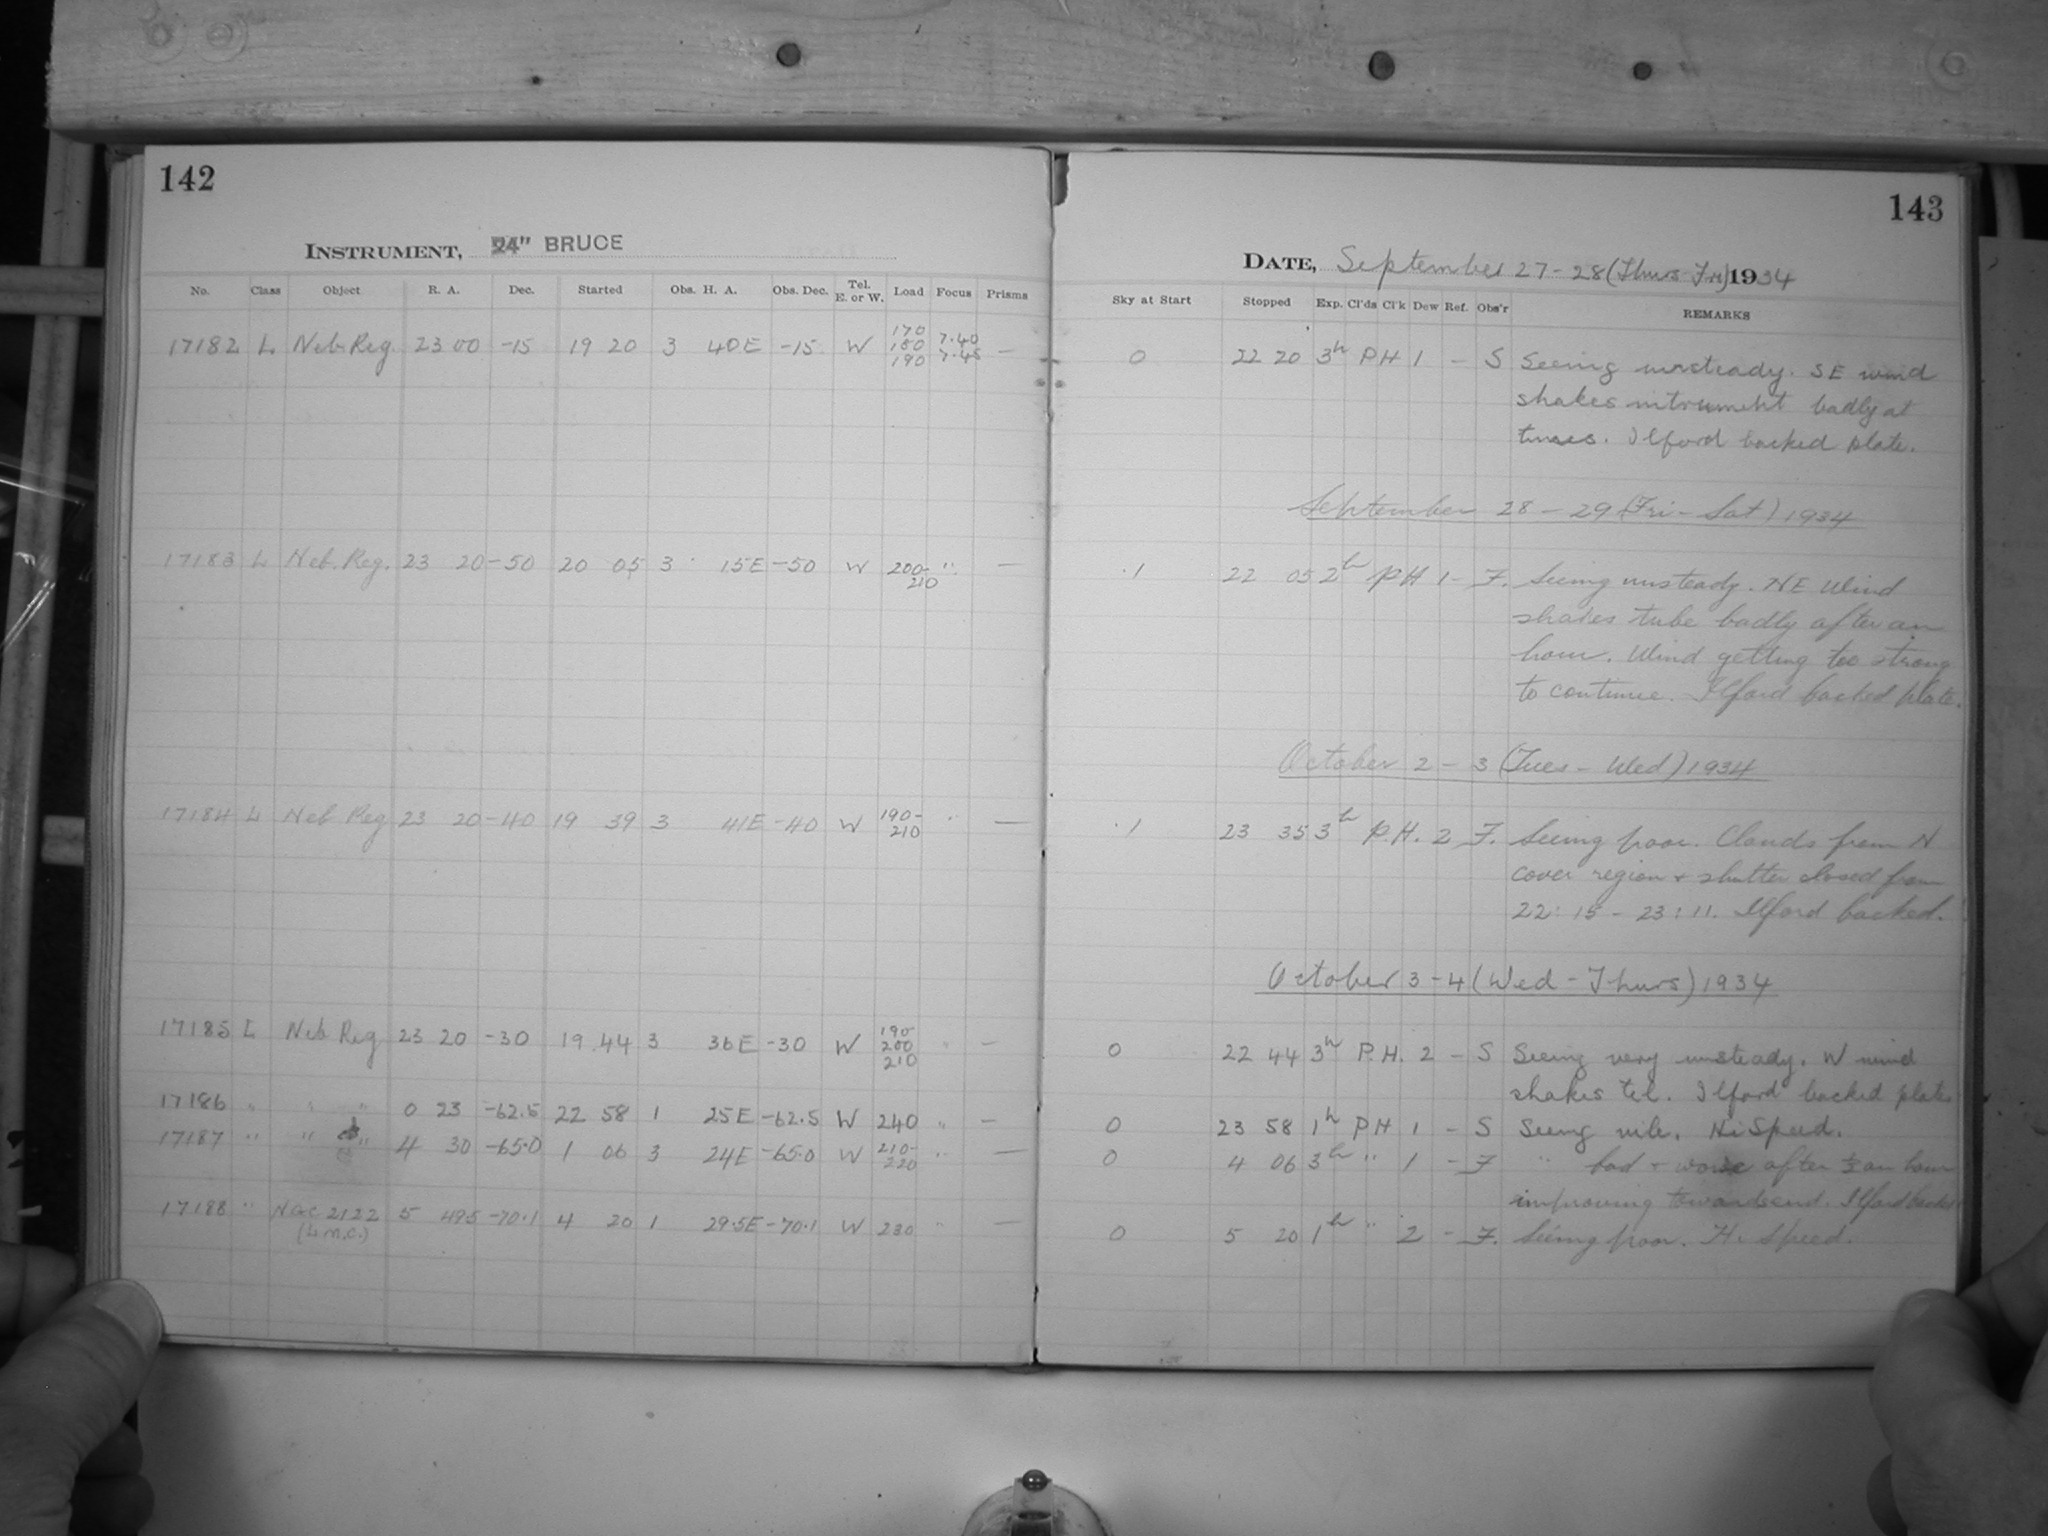 142
INSTRUMENT, 24" BRUCE
No. Class Object R. A. Dec. Started Obs. H. A. Obs. Dec. Tel. E. or W. Load Focus Prisms
17182 L Neb. Reg. 23 00 -15 19 20 3 40E -15 W 170 180 190 7.40 7.45 —
17183 L Neb. Reg. 23 20 -50 20 05 3 15E -50 W 200- 210 " —
17184 L Neb Reg 23 20 -40 19 39 3 41E -40 W 190- 210 " —
17185 L Neb Reg 23 20 -30 19 44 3 36E -30 W 190- 200 210 " —
17186 " " " 0 23 -62.5 22 58 1 25E -62.5 W 240 " —
17187 " " " 4 30 -65.0 1 06 3 24E -65.0 W 210- 220 " —
17188 " NGC 2122 5 49.5 -70.1 4 20 1 29.5E -70.1 W 230 " —
(L.M.C.)
143
DATE, September 27-28 (Thurs-Fri) 1934
Sky at Start Stopped Exp. Cl'ds Cl'k Dew Ref. Obs'r REMARKS
0 22 20 3h P H 1 - S Seeing unsteady. SE wind
shakes intrument badly at
times. Ilford backed plate.
September 28-29 (Fri-Sat) 1934
.1 22 05 2h P H 1 - F. Seeing unsteady. NE Wind
shakes tube badly after an
hour. Wind getting too strong
to continue. Ilford backed plate.
October 2-3 (Tues-Wed) 1934
.1 23 35 3h P.H. 2 F. Seeing poor. Clouds from N
cover region + shutter closed from
22:15 - 23:11. Ilford backed.
October 3-4 (Wed-Thurs) 1934
0 22 44 3h P.H. 2 - S Seeing very unsteady. W wind
shakes tel. Ilford backed plate
0 23 58 1h P H 1 - S Seeing vile. Hi Speed.
0 4 06 3h " 1 - F " bad + worse after ½ an hour
improving towards end. Ilford backed
0 5 20 1h " 2 - F. Seeing poor. Hi Speed.